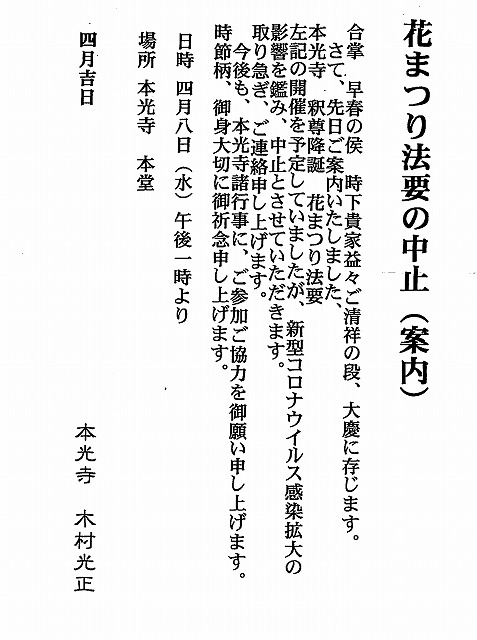 花まつり法要の中止（案内）
合掌　早春の侯　時下貴家益々ご清祥の段、大慶に存じます。
さて、先日ご案内いたしました、
本光寺　釈尊降誕　花まつり法要
左記の開催を予定していましたが、新型コロナウイルス感染拡大の
影響を鑑み、中止とさせていただきます。
取り急ぎ、ご連絡申し上げます。
今後も、本光寺諸行事に、ご参加ご協力を御願い申し上げます。
時節柄、御身大切に御祈念申し上げます。
日時　四月八日（水）午後一時より
場所　本光寺　本堂
四月吉日
本光寺　木村光正